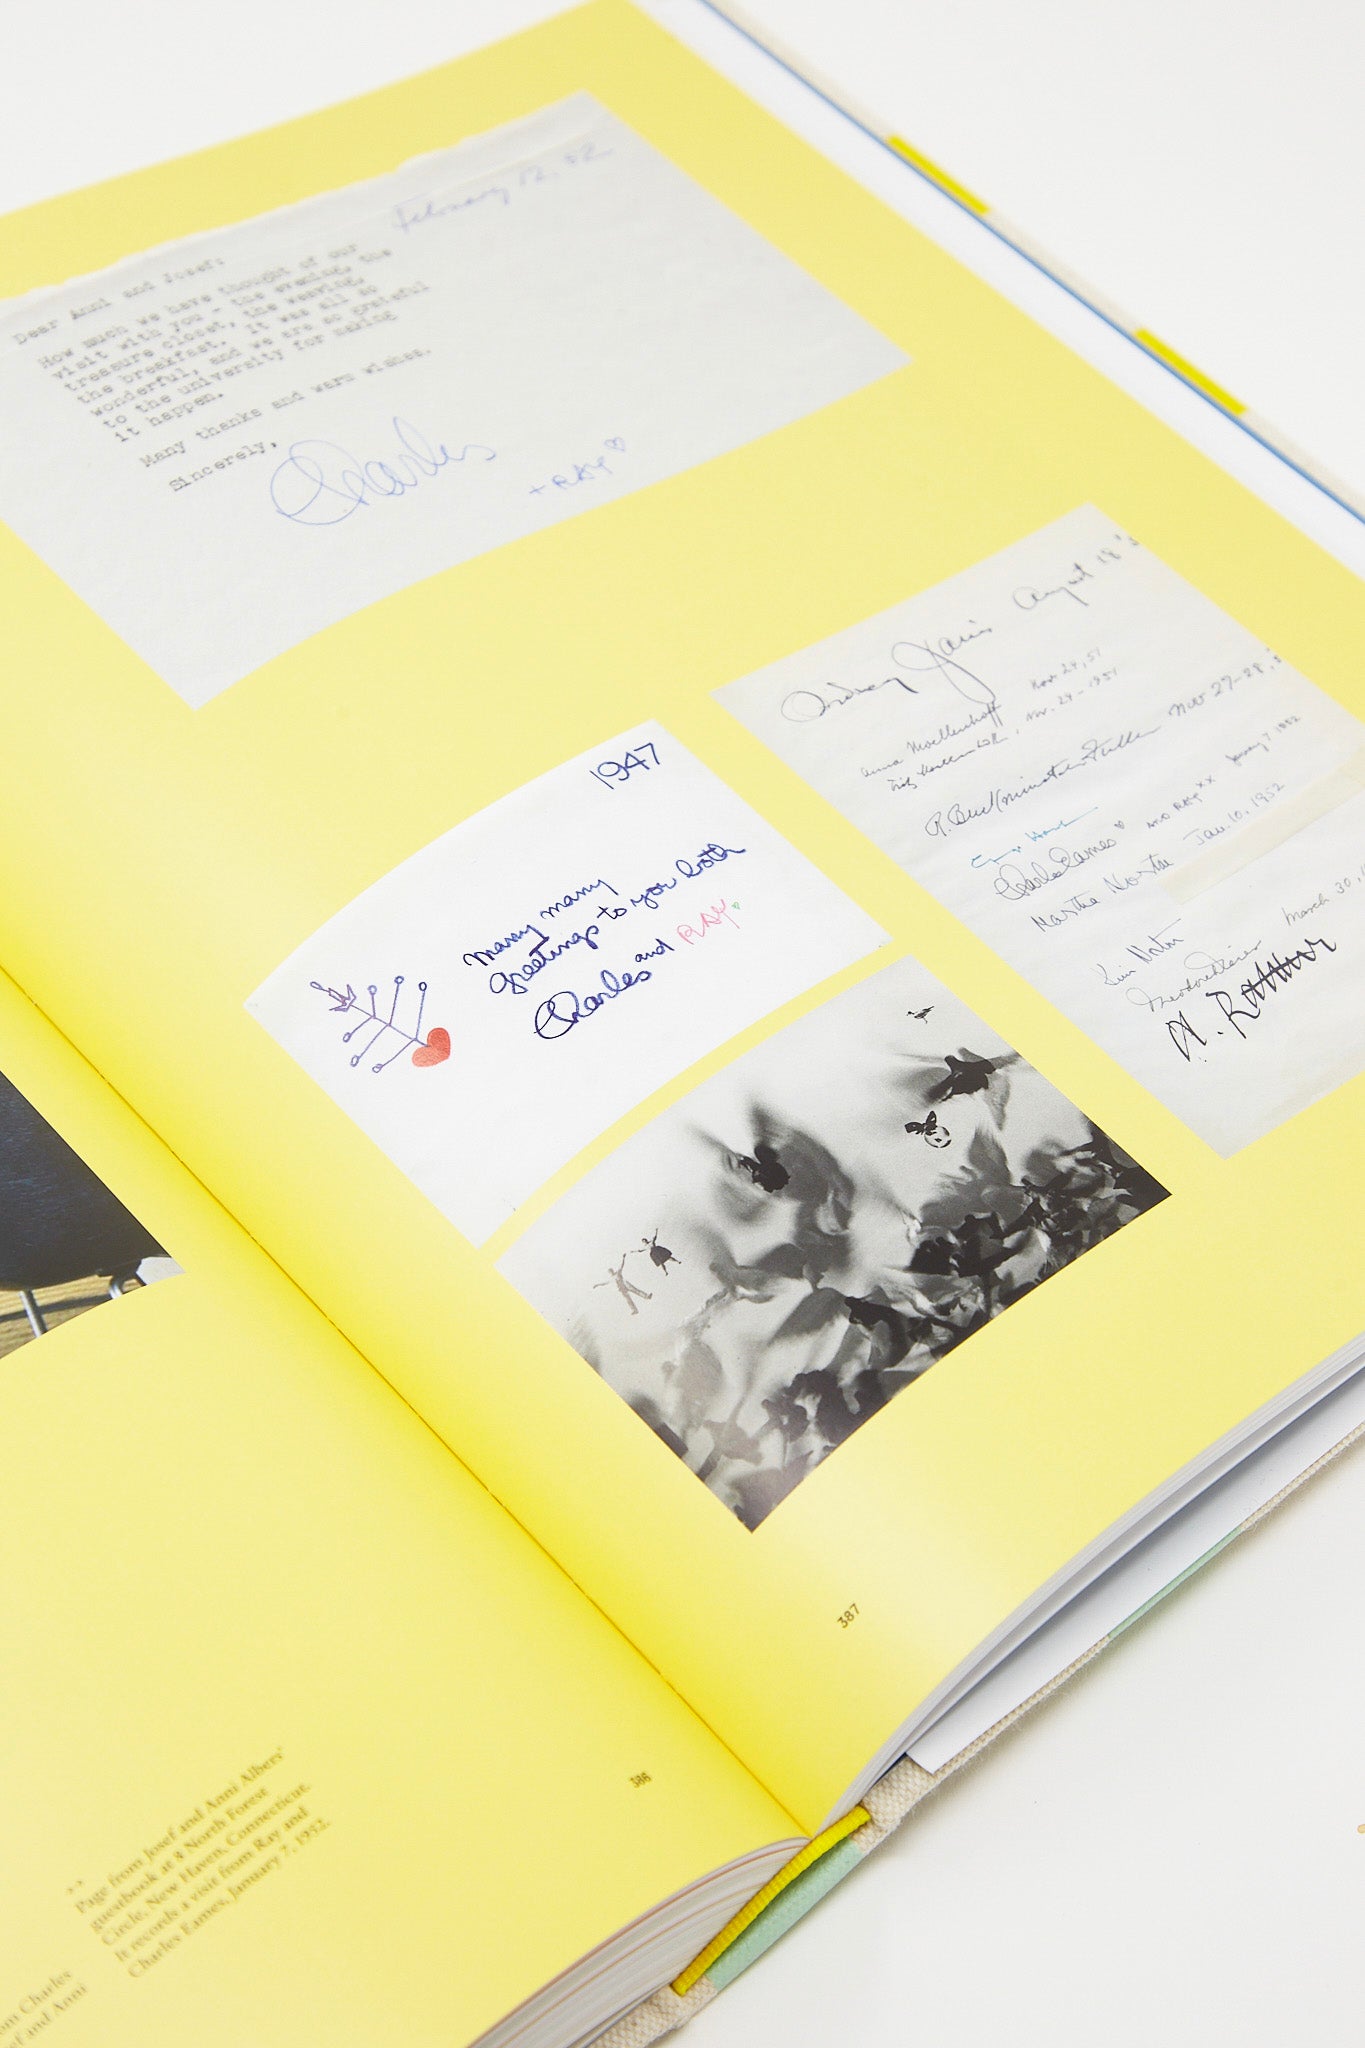 February 12, 52
Dear Anni and Josef:
How much we have thought of our
visit with you - the evening, the
treasure closet, the weaving,
the breakfast. It was all so
wonderful, and we are so grateful
to the university for making
it happen.
Many thanks and warm wishes.
Sincerely,
Charles
+ RAY
1947
Many many
greetings to you both
Charles and RAY
August 18
Sidney Janis
Anna Moellenhoff Nov 24, 51
Nov. 24 - 1951
R. Buckminster Fuller Nov 27-28,
Charles Eames AND RAY xx January 7 1952
Jan. 10, 1952
March 30,
387
386
Page from Josef and Anni Albers'
guestbook at 8 North Forest
Circle, New Haven, Connecticut.
It records a visit from Ray and
Charles Eames, January 7, 1952.
om Charles
ef and Anni